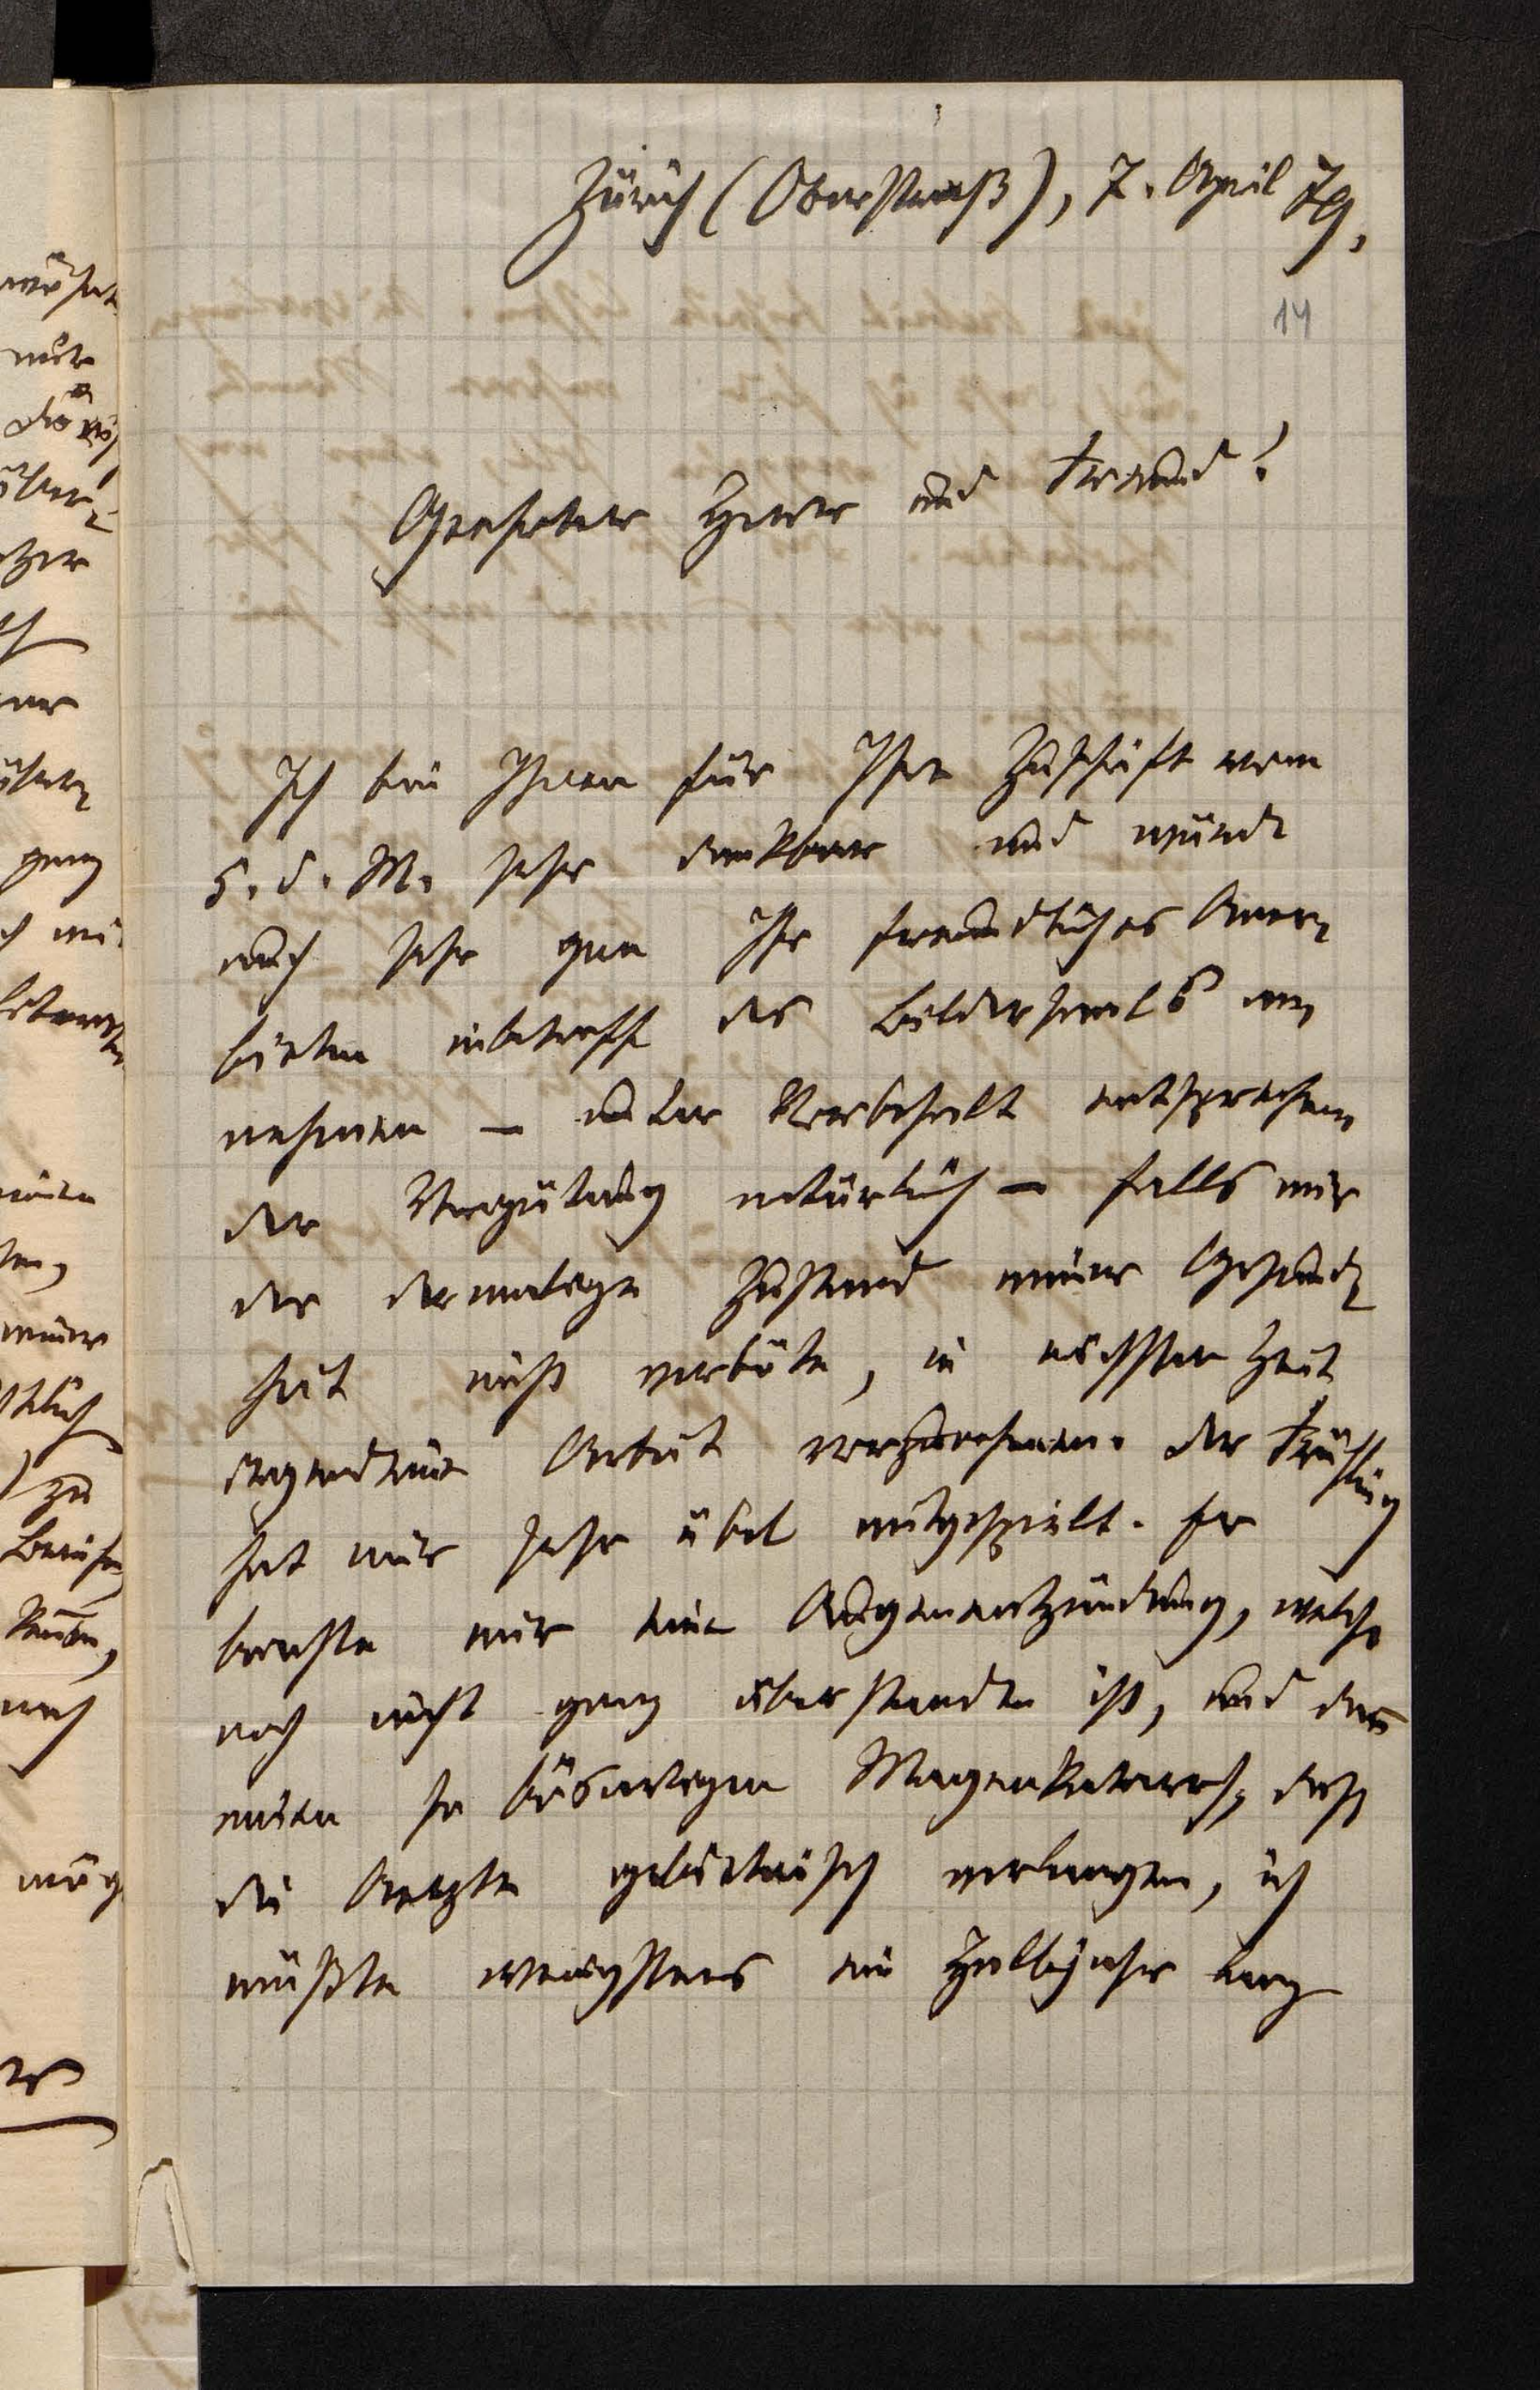 Zürich (Oberstraß), 7. April 79.
14
Geehrter Herr und Freund!
Ich bin Ihnen für Ihre Zuschrift vom
5. d. M. sehr dankbar und würde
auch sehr gern Ihr freundliches Aner-
bieten inbetreff des Bildersaals an-
nehmen – unter Vorbehalt entsprechen-
der Vergütung natürlich – falls mir
der dermalige Zustand meiner Gesund-
heit nicht verböte, in nächster Zeit
irgendeine Arbeit vorzunehmen. Der Frühling
hat mir sehr übel mitgespielt. Er
brachte mir eine Augenentzündung, welche
noch nicht ganz überstanden ist, und dazu
einen so bösartigen Magenkatarrh, daß
die Aerzte gebieterisch verlangen, ich
müßte wenigstens ein Halbjahr lang